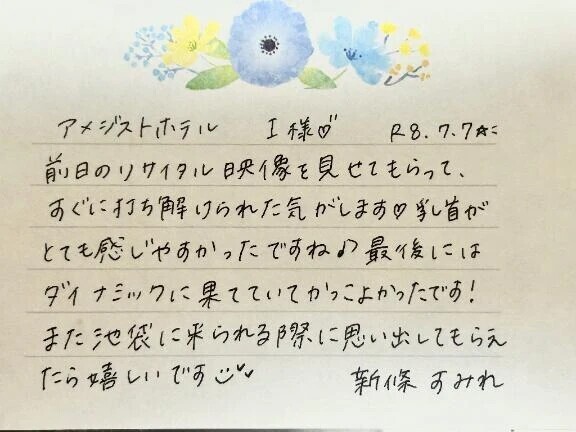 アメジストホテル　I様♡　R8.7.7☆ミ
前日のリサイタル映像を見せてもらって、
すぐに打ち解けられた気がします♡乳首が
とても感じやすかったですね♪最後には
ダイナミックに果てていてかっこよかったです！
また池袋に来られる際に思い出してもらえ
たら嬉しいです
新條すみれ